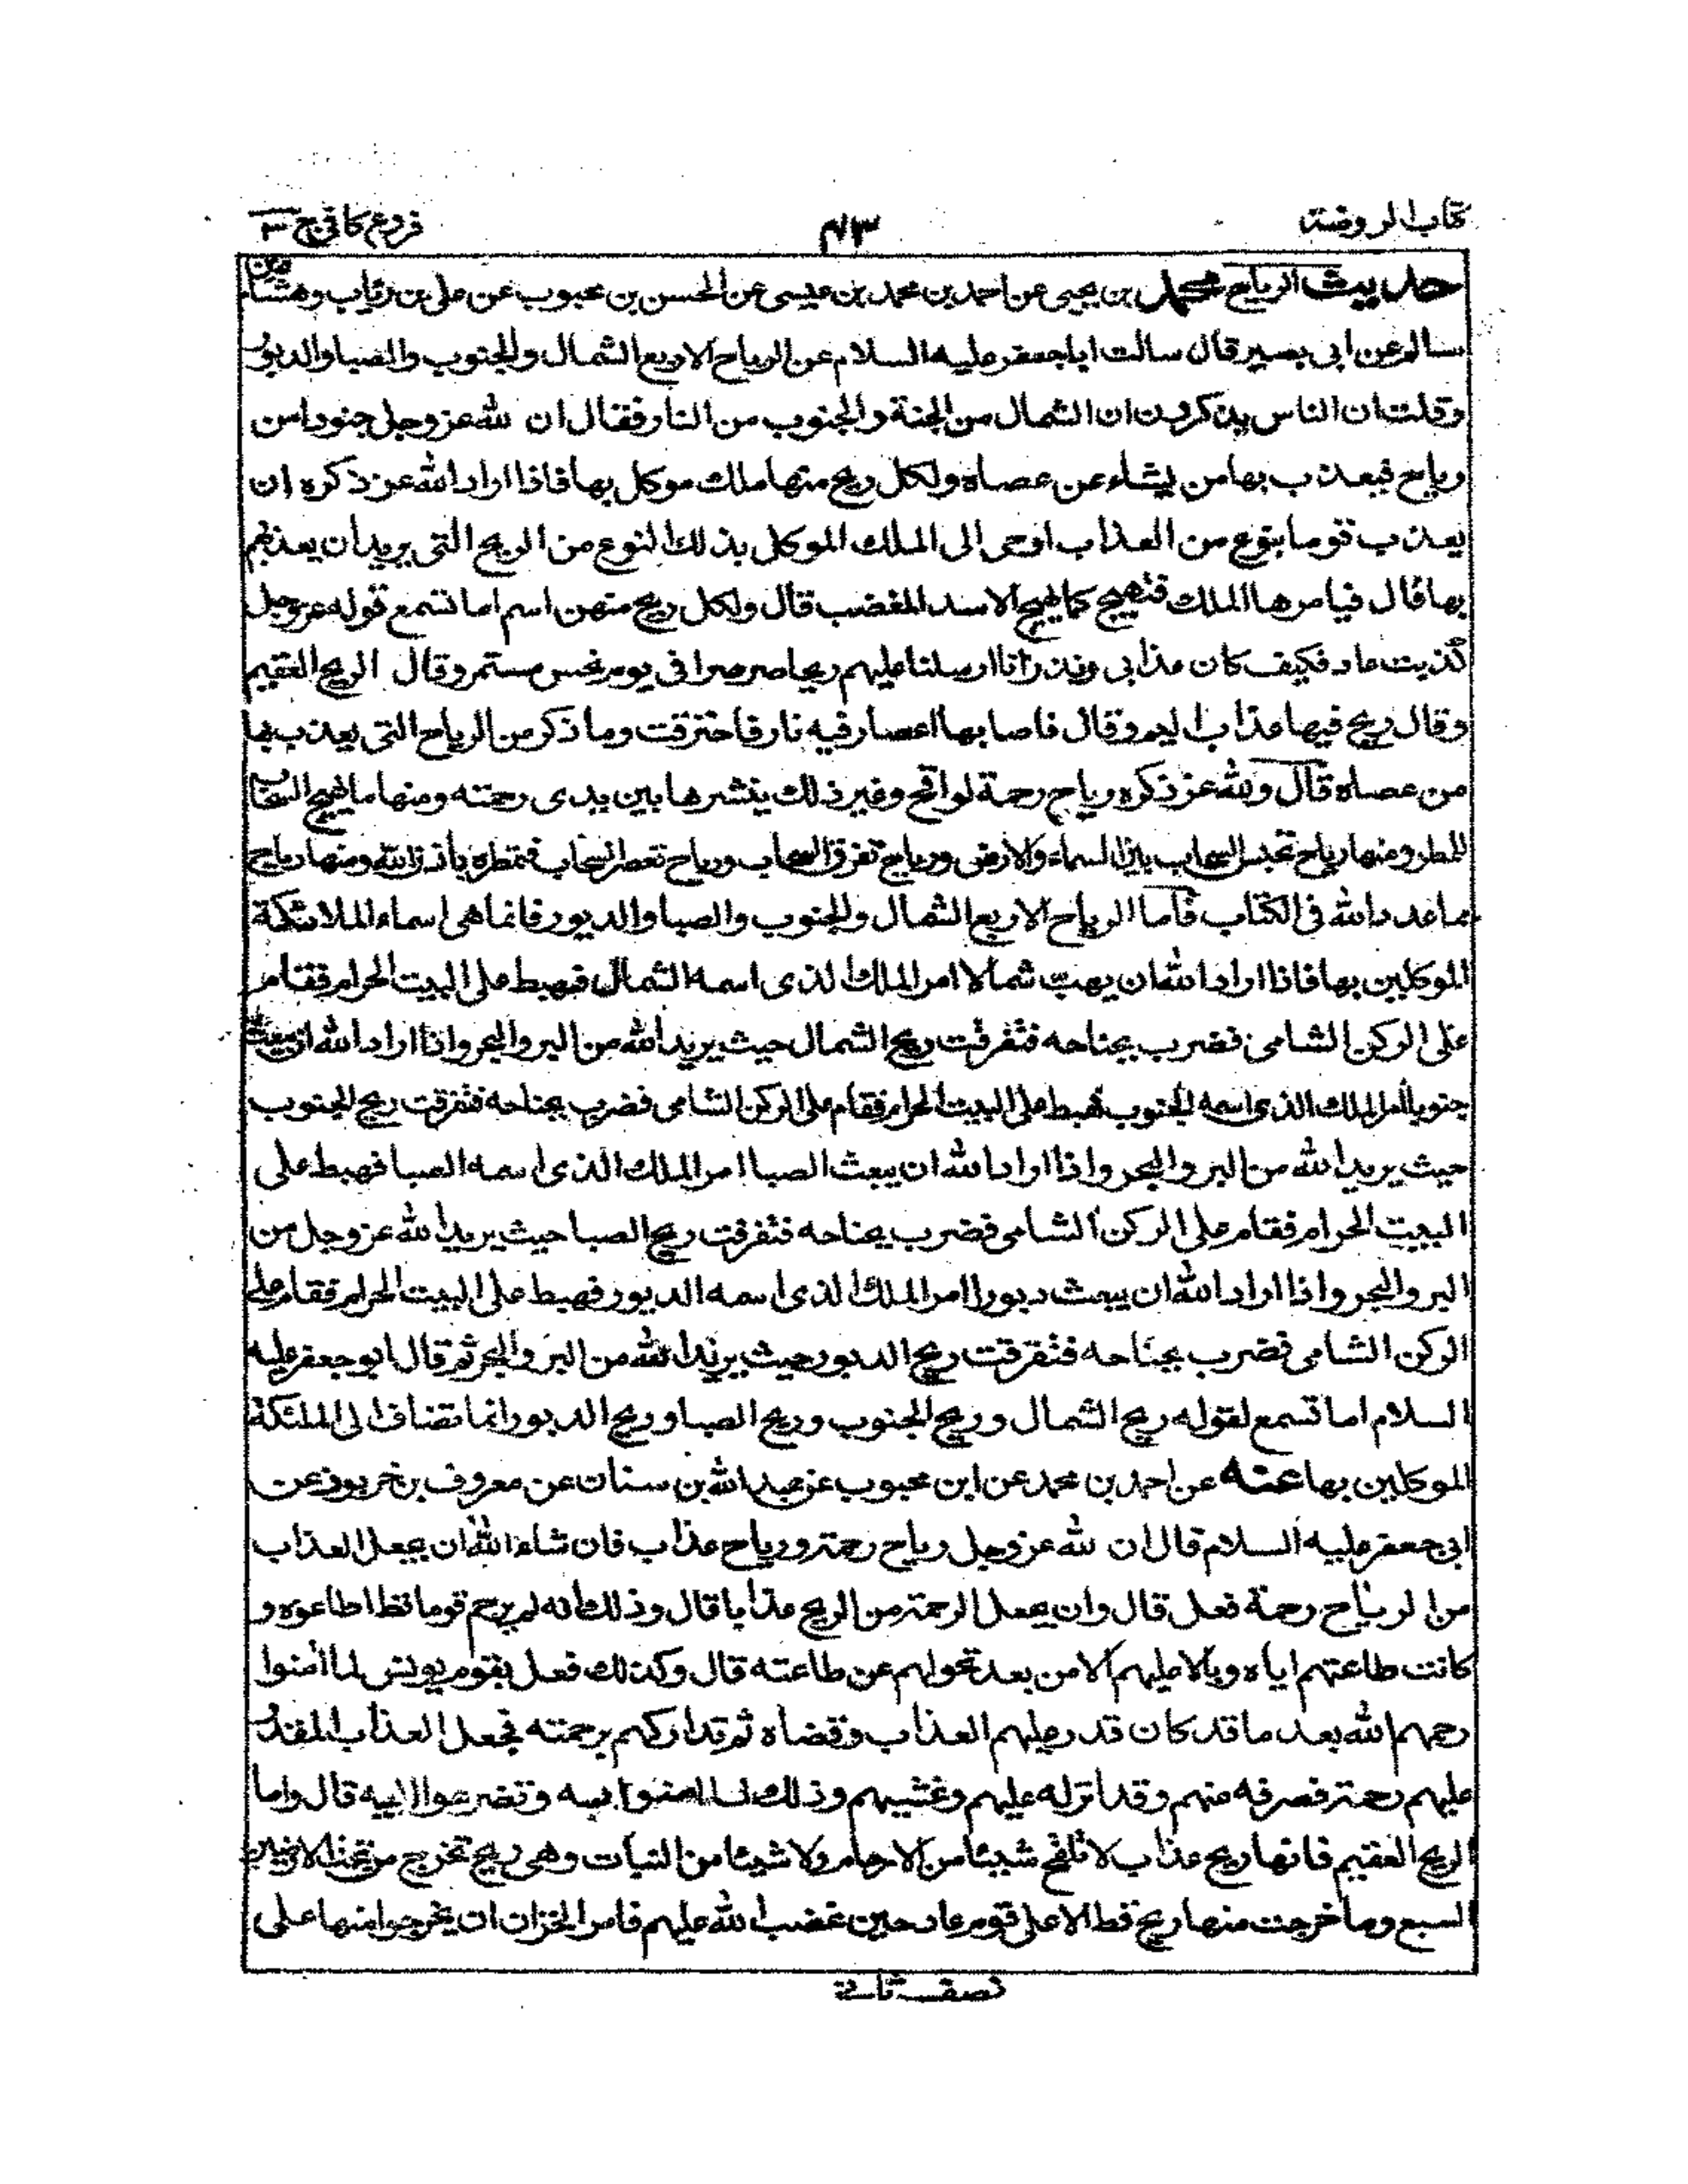 كتاب الروضة ٤٣ فروع كافي ج ٣
حديث الرياح محمد بن يحيى عن احمد بن محمد بن عيسى عن الحسن بن محبوب عن على بن رئاب وهشام بن
سالم عن ابى بصير قال سالت ابا جعفر عليه السلام عن الرياح الاربع الشمال والجنوب والصبا والدبور
وقلت ان الناس يذكرون ان الشمال من الجنة والجنوب من النار فقال ان لله عز وجل جنودا من
رياح فيعذب بها من يشاء عن عصاه ولكل ريح منها ملك موكل بها فاذا اراد الله عز ذكره ان
يعذب قوما بنوع من العذاب اوحى الى الملك الموكل بذلك النوع من الريح التى يريد ان يعذبهم
بها قال فيامرها الملك فتهيج كما يهيج الاسد المغضب قال ولكل ريح منهن اسم اما تسمع قوله عز وجل
كذبت عاد فكيف كان عذابى ونذر انا ارسلنا عليهم ريحا صرصرا فى يوم نحس مستمر وقال الريح العقيم
وقال ريح فيها عذاب اليم وقال فاصابها اعصار فيه نار فاحترقت وما ذكر من الرياح التى يعذب بها
من عصاه قال ولله عز ذكره رياح رحمة لواقح وغير ذلك ينشرها بين يدى رحمته ومنها ما يهيج السحاب
للمطر ومنها رياح تحبس السحاب بين السماء والارض ورياح تفرق السحاب ورياح تعصر السحاب فتمطره باذن الله ومنها رياح
مما عدد الله فى الكتاب فاما الرياح الاربع الشمال والجنوب والصبا والدبور فانما هى اسماء الملائكة
الموكلين بها فاذا اراد الله ان يهب شمالا امر الملك الذى اسمه الشمال فهبط على البيت الحرام فقام
على الركن الشامى فضرب بجناحه فتفرقت ريح الشمال حيث يريد الله من البر والبحر واذا اراد الله ان يبعث
جنوبا امر الملك الذى اسمه الجنوب فهبط على البيت الحرام فقام على الركن الشامى فضرب بجناحه فتفرقت ريح الجنوب
حيث يريد الله من البر والبحر واذا اراد الله ان يبعث الصبا امر الملك الذى اسمه الصبا فهبط على
البيت الحرام فقام على الركن الشامى فضرب بجناحه فتفرقت ريح الصبا حيث يريد الله عز وجل من
البر والبحر واذا اراد الله ان يبعث دبورا امر الملك الذى اسمه الدبور فهبط على البيت الحرام فقام على
الركن الشامى فضرب بجناحه فتفرقت ريح الدبور حيث يريد الله من البر والبحر ثم قال ابو جعفر عليه
السلام اما تسمع لقوله ريح الشمال وريح الجنوب وريح الصبا وريح الدبور انما تضاف الى الملئكة
الموكلين بها عنه عن احمد بن محمد عن ابن محبوب عن عبد الله بن سنان عن معروف بن خربوذ عن
ابى جعفر عليه السلام قال ان لله عز وجل رياح رحمة ورياح عذاب فان شاء الله ان يجعل العذاب
من الرياح رحمة فعل قال وان يجعل الرحمة من الريح عذابا قال وذلك انه لم يرحم قوما قط اطاعوه و
كانت طاعتهم اياه وبالا عليهم الا من بعد تحولهم عن طاعته قال وكذلك فعل بقوم يونس لما امنوا
رحمهم الله بعد ما قد كان قدر عليهم العذاب وقضاه ثم تداركهم برحمته فجعل العذاب المقدر
عليهم رحمة فصرفه عنهم وقد انزله عليهم وغشيهم وذلك لما امنوا به وتضرعوا اليه قال واما
الريح العقيم فانها ريح عذاب لا تلقح شيئا من الارحام ولا شيئا من النبات وهى ريح تخرج من تحت الارضين
السبع وما خرجت منها ريح قط الا على قوم عاد حين غضب الله عليهم فامر الخزان ان يخرجوا منها على
نصف ثانى